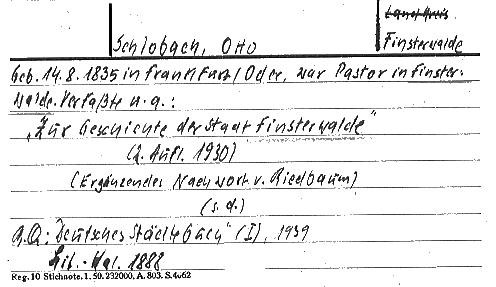 Land Kreis
Schlobach, Otto
Finsterwalde
Geb. 14.8.1835 in Frankfurt/Oder, war Pastor in Finster-
walde. Verfaßte u.a.:
„Zur Geschichte der Stadt Finsterwalde"
(2. Aufl. 1930)
(Ergänzendes Nachwort v. Riedbaum)
(s.d.)
A.Q.: „Deutsches Städtebuch" (I), 1939
Lit.-Kal. 1888
Reg. 10 Stichnote. 1. 50. 232000. A. 803. S. 4062